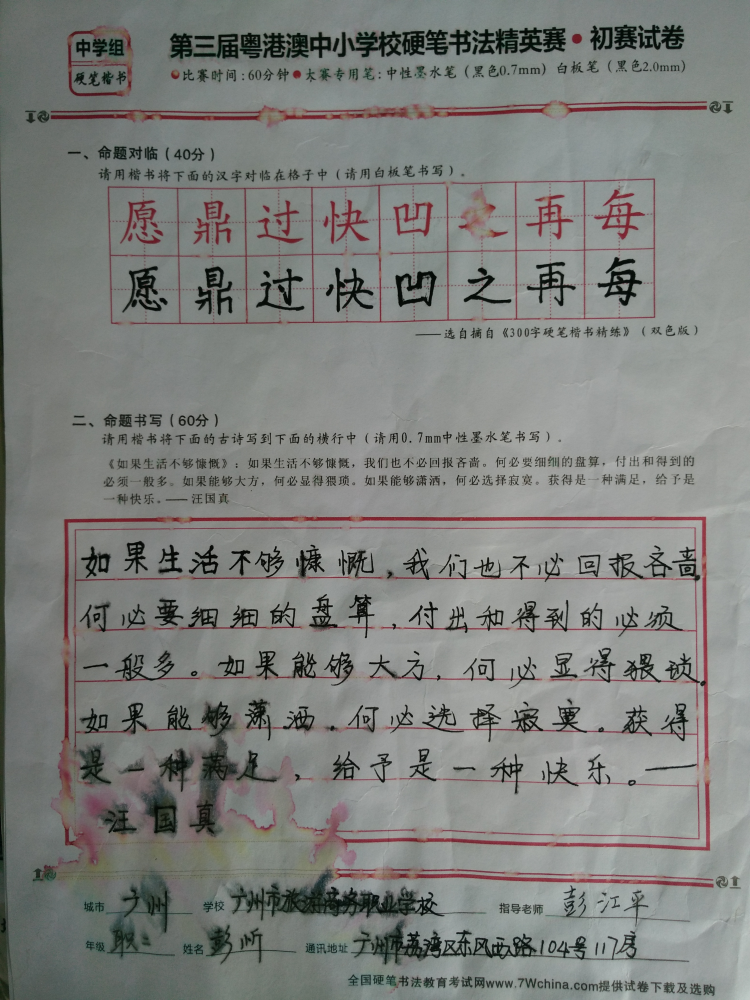 中学组
硬笔楷书
第三届粤港澳中小学校硬笔书法精英赛·初赛试卷
●比赛时间:60分钟●大赛专用笔:中性墨水笔(黑色0.7mm) 白板笔(黑色2.0mm)
一、命题对临(40分)
请用楷书将下面的汉字对临在格子中(请用白板笔书写)。
愿鼎过快凹之再每
愿鼎过快凹之再每
——选自摘自《300字硬笔楷书精练》(双色版)
二、命题书写(60分)
请用楷书将下面的古诗写到下面的横行中(请用0.7mm中性墨水笔书写)。
《如果生活不够慷慨》:如果生活不够慷慨,我们也不必回报吝啬。何必要细细的盘算,付出和得到的
必须一般多。如果能够大方,何必显得猥琐。如果能够潇洒,何必选择寂寞。获得是一种满足,给予是
一种快乐。——汪国真
如果生活不够慷慨,我们也不必回报吝啬。
何必要细细的盘算,付出和得到的必须
一般多。如果能够大方,何必显得猥琐。
如果能够潇洒。何必选择寂寞。获得
是一种满足,给予是一种快乐。——
汪国真
城市 广州 学校 广州市旅游商务职业学校 指导老师 彭江平
年级 职二 姓名 彭昕 通讯地址 广州市荔湾区东风西路104号117房
全国硬笔书法教育考试网www.7Wchina.com提供试卷下载及选购